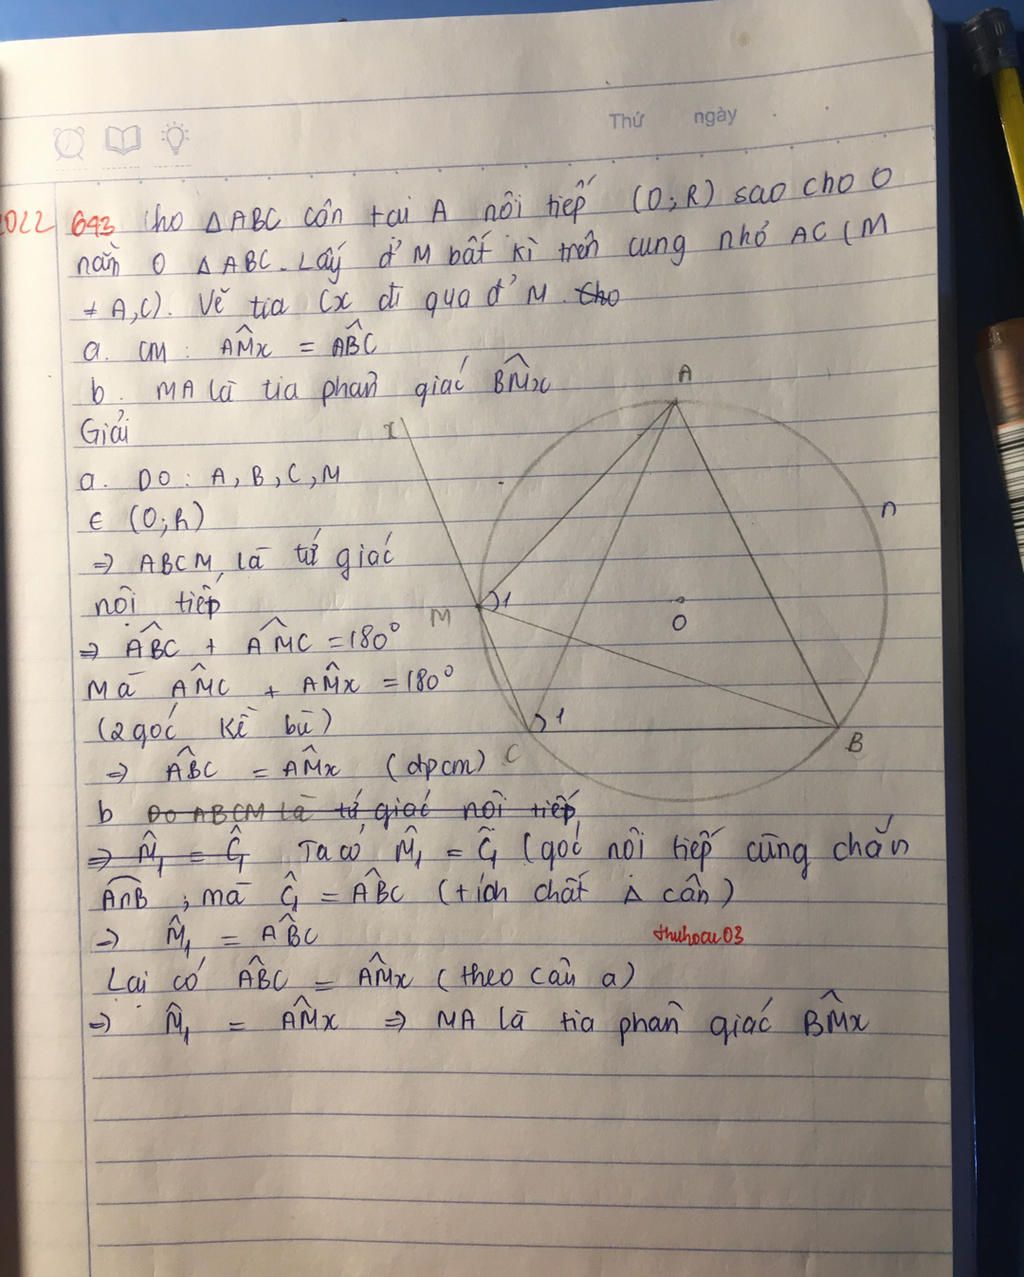 Thứ ngày
2022 693 Cho △ABC cân tại A nội tiếp (O;R) sao cho O
nằm O △ABC. Lấy đ' M bất kì trên cung nhỏ AC (M
≠ A,C). Vẽ tia Cx đi qua đ' M. ~~Cho~~
a. CM : AM̂x = AB̂C
b. MA là tia phân giác BM̂x
Giải
A
x
a. DO : A, B, C, M
∈ (O;R)
n
=> ABCM là tứ giác
nội tiếp
M
1
O
=> AB̂C + AM̂C = 180°
Mà AM̂C + AM̂x = 180°
(2 góc kề bù)
1
C
B
=> AB̂C = AM̂x (đpcm)
b ~~Do ABCM là tứ giác nội tiếp~~
~~=> M̂₁ = Ĉ₁~~ Ta có M̂₁ = Ĉ₁ (góc nội tiếp cùng chắn
AnB ; mà Ĉ₁ = AB̂C (tích chất △ cân)
=> M̂₁ = AB̂C
thuhocu03
Lại có AB̂C = AM̂x (theo câu a)
=> M̂₁ = AM̂x => MA là tia phân giác BM̂x